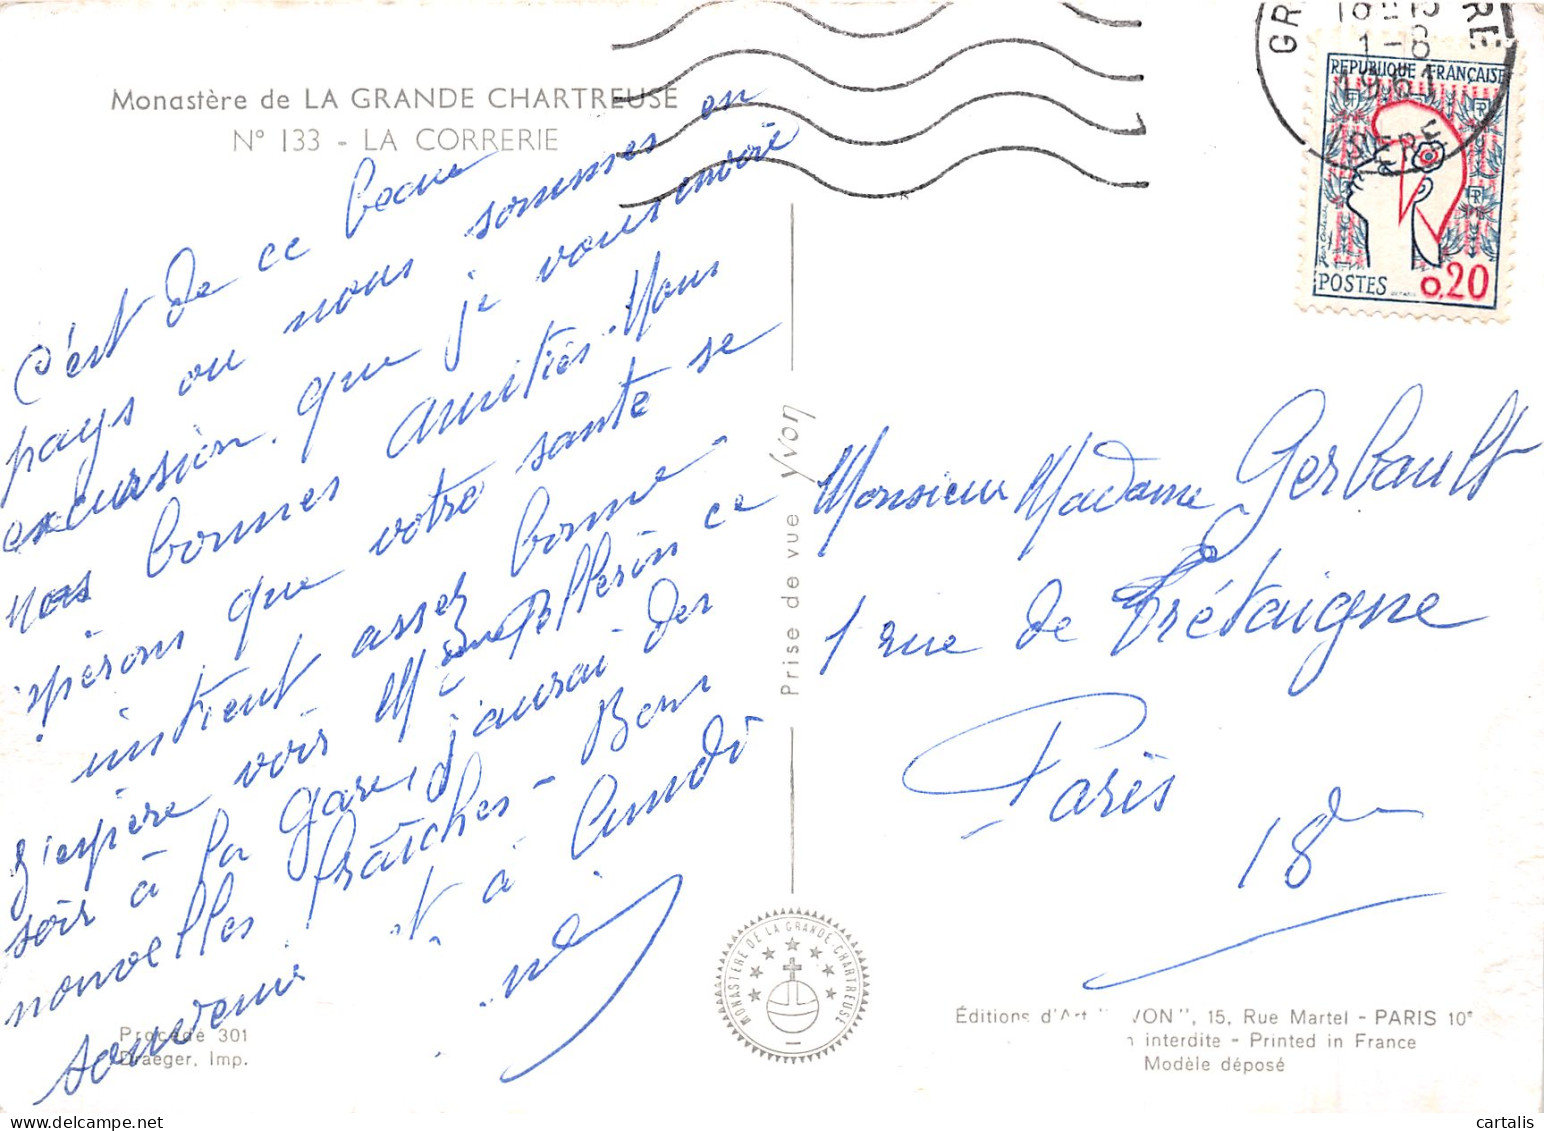 Monastère de LA GRANDE CHARTREUSE
N° 133 - LA CORRERIE
C'est de ce beau
pays ou nous sommes en
excursion. que je vous envoie
nos bonnes amitiés. Nous
espérons que votre santé se
maintient assez bonne
J'espère voir Mme Pellerin ce
soir à la gare, j'aurai des
nouvelles fraîches - Bons
souvenirs et à lundi
REPUBLIQUE FRANÇAISE
POSTES 0,20
ISERE
Prise de vue Yvon
Monsieur Madame Gerbault
1 rue de Trétaigne
Paris
18
MONASTÈRE DE LA GRANDE-CHARTREUSE
Procédé 301
Draeger, Imp.
Éditions d'Art "YVON", 15, Rue Martel - PARIS 10e
interdite - Printed in France
Modèle déposé
cartalis